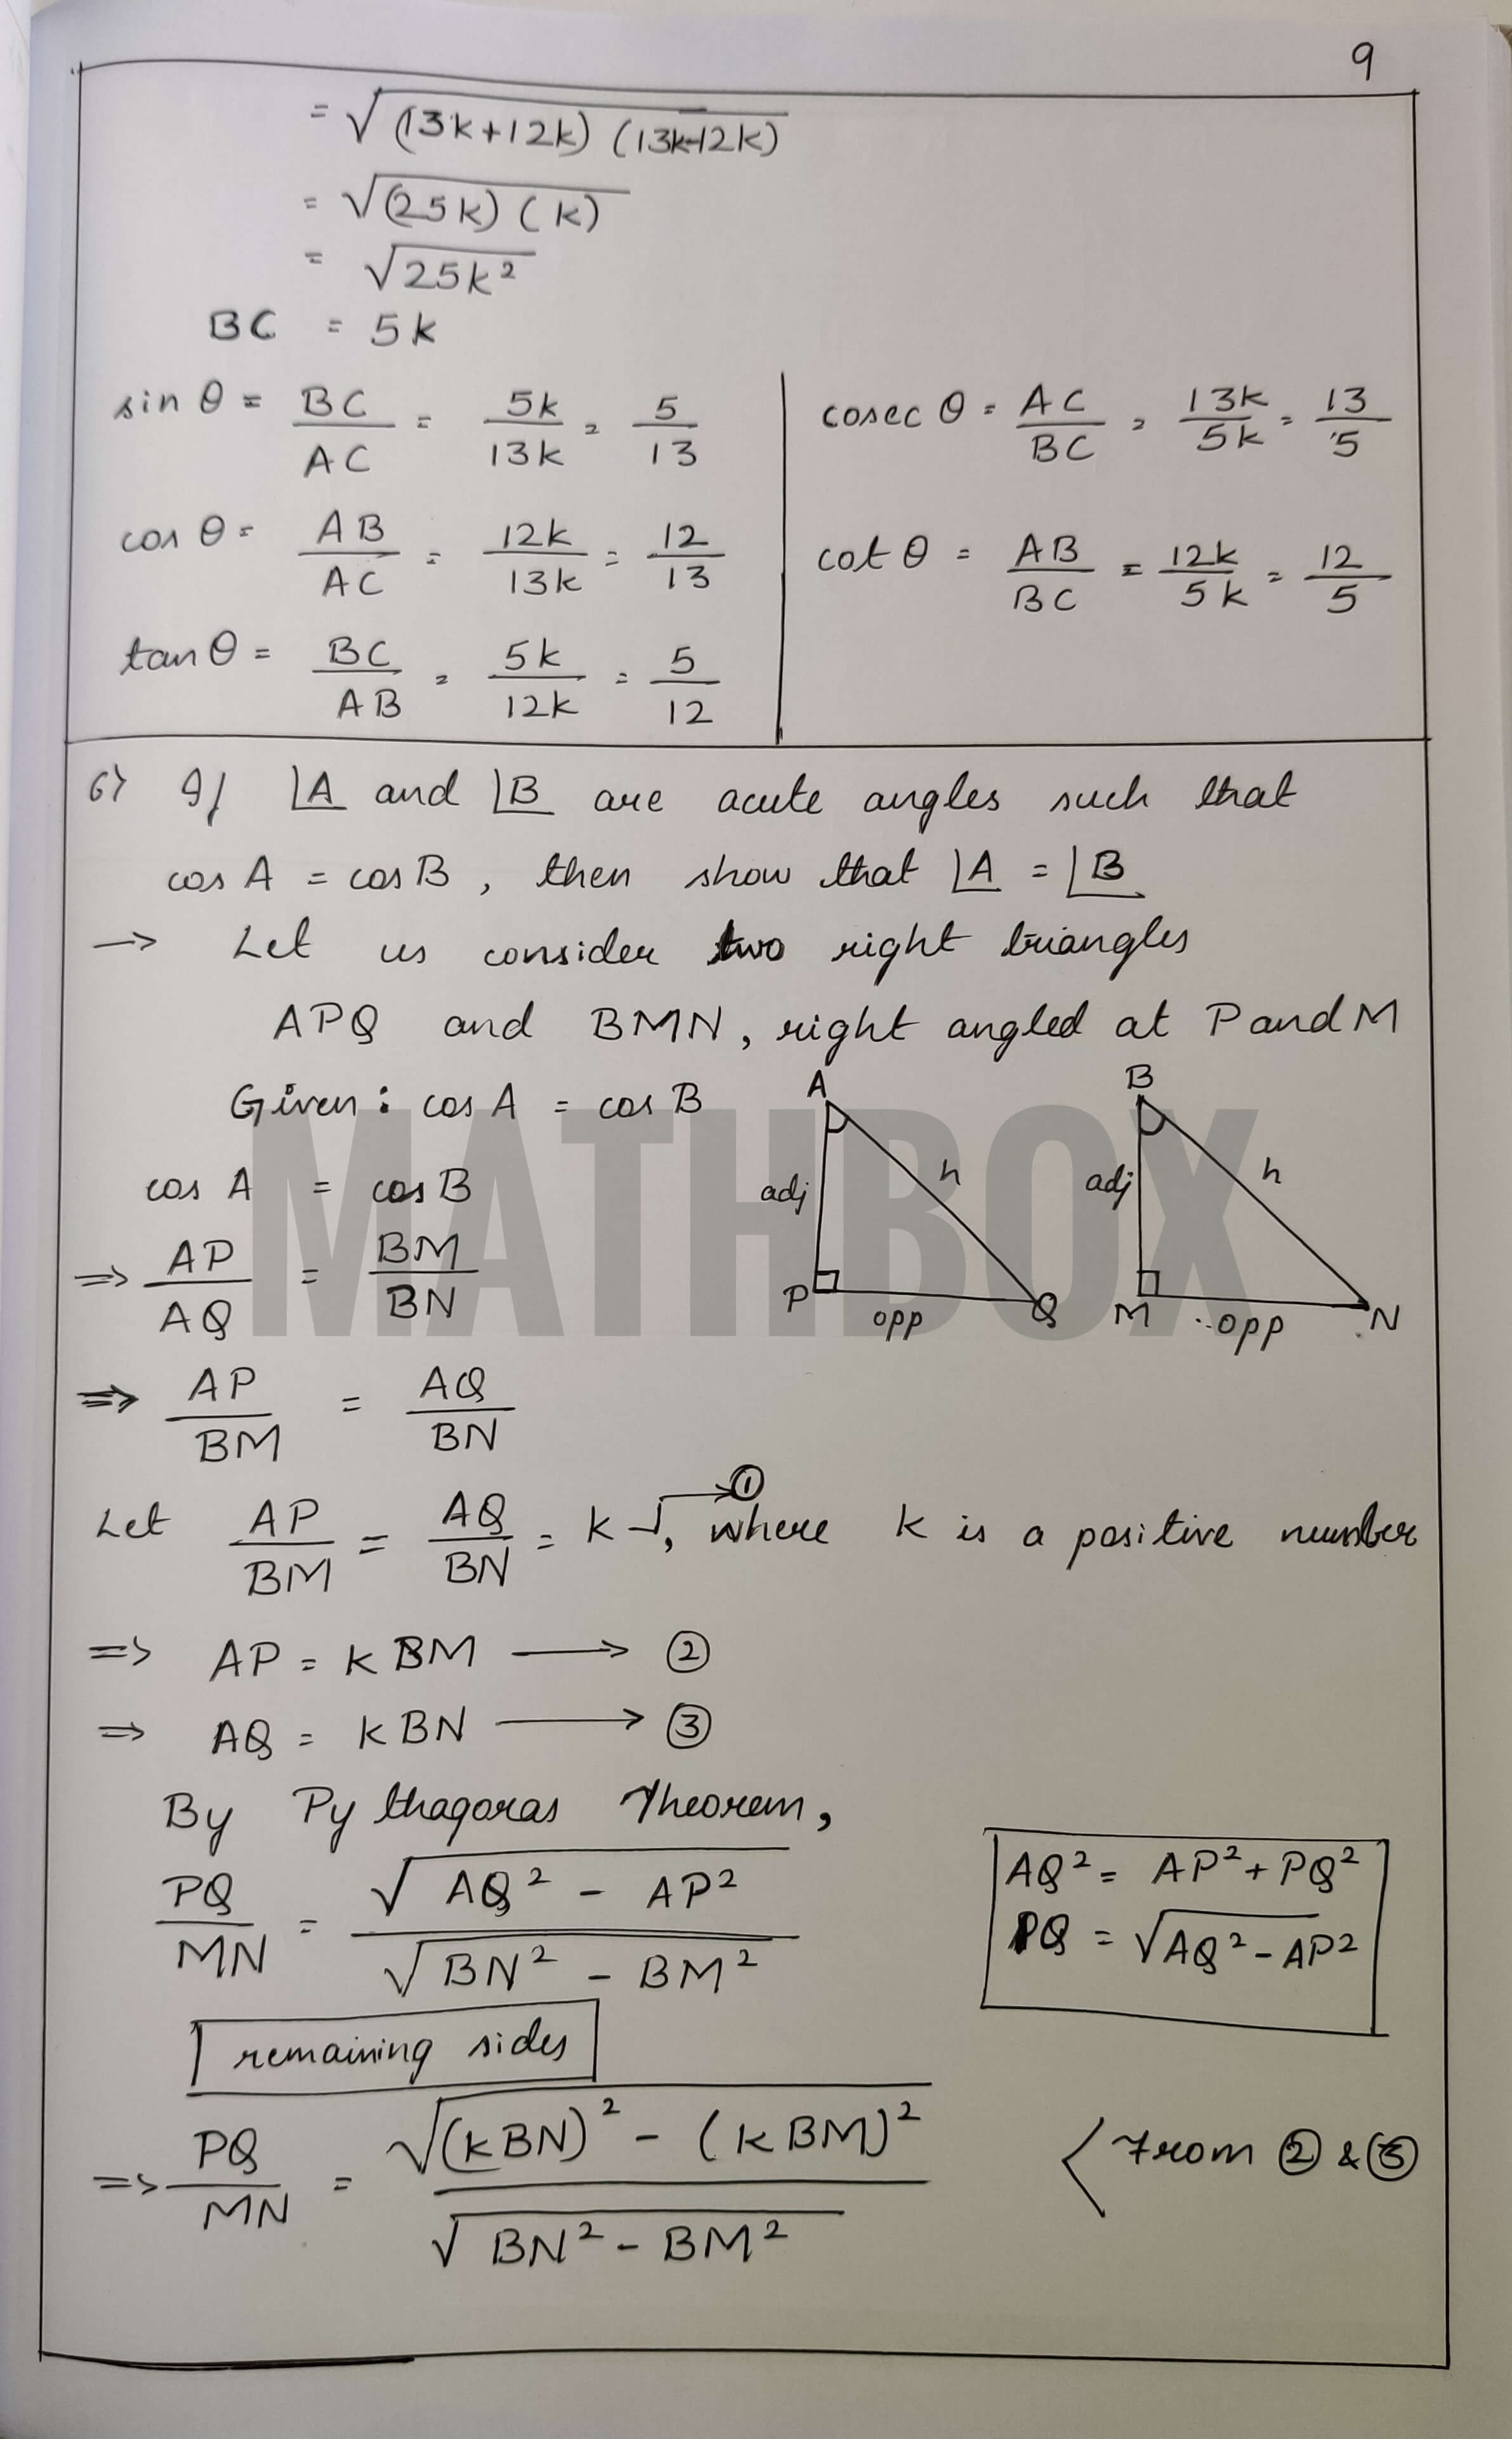 9
= √(13k+12k) (13k-12k)
= √(25k) (k)
= √25k²
BC = 5k
sin θ = BC/AC = 5k/13k = 5/13
cosec θ = AC/BC = 13k/5k = 13/5
cos θ = AB/AC = 12k/13k = 12/13
cot θ = AB/BC = 12k/5k = 12/5
tan θ = BC/AB = 5k/12k = 5/12
6) If ∠A and ∠B are acute angles such that
cos A = cos B, then show that ∠A = ∠B
→ Let us consider two right triangles
APQ and BMN, right angled at P and M
Given: cos A = cos B
A
adj
h
P
opp
Q
B
adj
h
M
opp
N
MATHBOX
cos A = cos B
⇒ AP/AQ = BM/BN
⇒ AP/BM = AQ/BN
Let AP/BM = AQ/BN = k → ①, where k is a positive number
⇒ AP = k BM → ②
⇒ AQ = k BN → ③
By Pythagoras Theorem,
PQ/MN = √AQ² - AP² / √BN² - BM²
AQ² = AP² + PQ²
PQ = √AQ² - AP²
remaining sides
⇒ PQ/MN = √(kBN)² - (kBM)² / √BN² - BM²
< From ② & ③